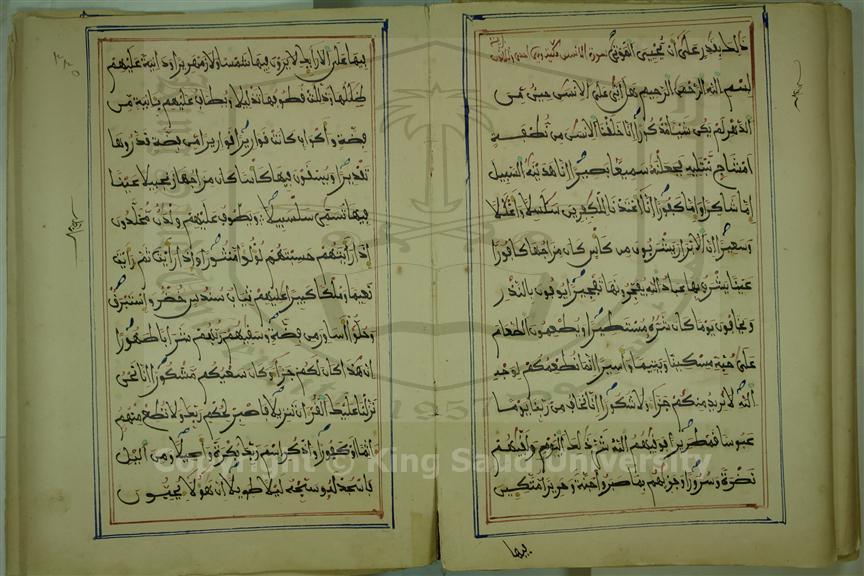 ذلك بقدر على ان يحيي الموتى سورة الانسان
بسم الله الرحمن الرحيم هل اتى على الانسن حين من
الدهر لم يكن شيئا مذكورا انا خلقنا الانسن من نطفة
امشاج نبتليه فجعلنه سميعا بصيرا انا هدينه السبيل
اما شاكرا واما كفورا انا اعتدنا للكفرين سلسلا واغللا
وسعيرا ان الابرار يشربون من كاس كان مزاجها كافورا
عينا يشرب بها عباد الله يفجرونها تفجيرا يوفون بالنذر
ويخافون يوما كان شره مستطيرا ويطعمون الطعام
على حبه مسكينا ويتيما واسيرا انما نطعمكم لوجه
الله لا نريد منكم جزاء ولا شكورا انا نخاف من ربنا يوما
عبوسا قمطريرا فوقيهم الله شر ذلك اليوم ولقيهم
نضرة وسرورا وجزيهم بما صبروا جنة وحريرا متكين
فيها
فيها على الارايك لا يرون فيها شمسا ولا زمهريرا ودانية عليهم
ظللها وذللت قطوفها تذليلا ويطاف عليهم بانية من
فضة واكواب كانت قواريرا قواريرا من فضة قدروها
تقديرا ويسقون فيها كاسا كان مزاجها زنجبيلا عينا
فيها تسمى سلسبيلا ويطوف عليهم ولدن مخلدون
اذا رايتهم حسبتهم لؤلؤا منثورا واذا رايت ثم رايت
نعيما وملكا كبيرا عليهم ثياب سندس خضر واستبرق
وحلوا اساور من فضة وسقيهم ربهم شرابا طهورا
ان هذا كان لكم جزاء وكان سعيكم مشكورا انا نحن
نزلنا عليك القران تنزيلا فاصبر لحكم ربك ولا تطع منهم
اثما او كفورا واذكر اسم ربك بكرة واصيلا ومن اليل
فاسجد له وسبحه ليلا طويلا ان هؤلاء يحبون
Copyright © King Saud University
1957